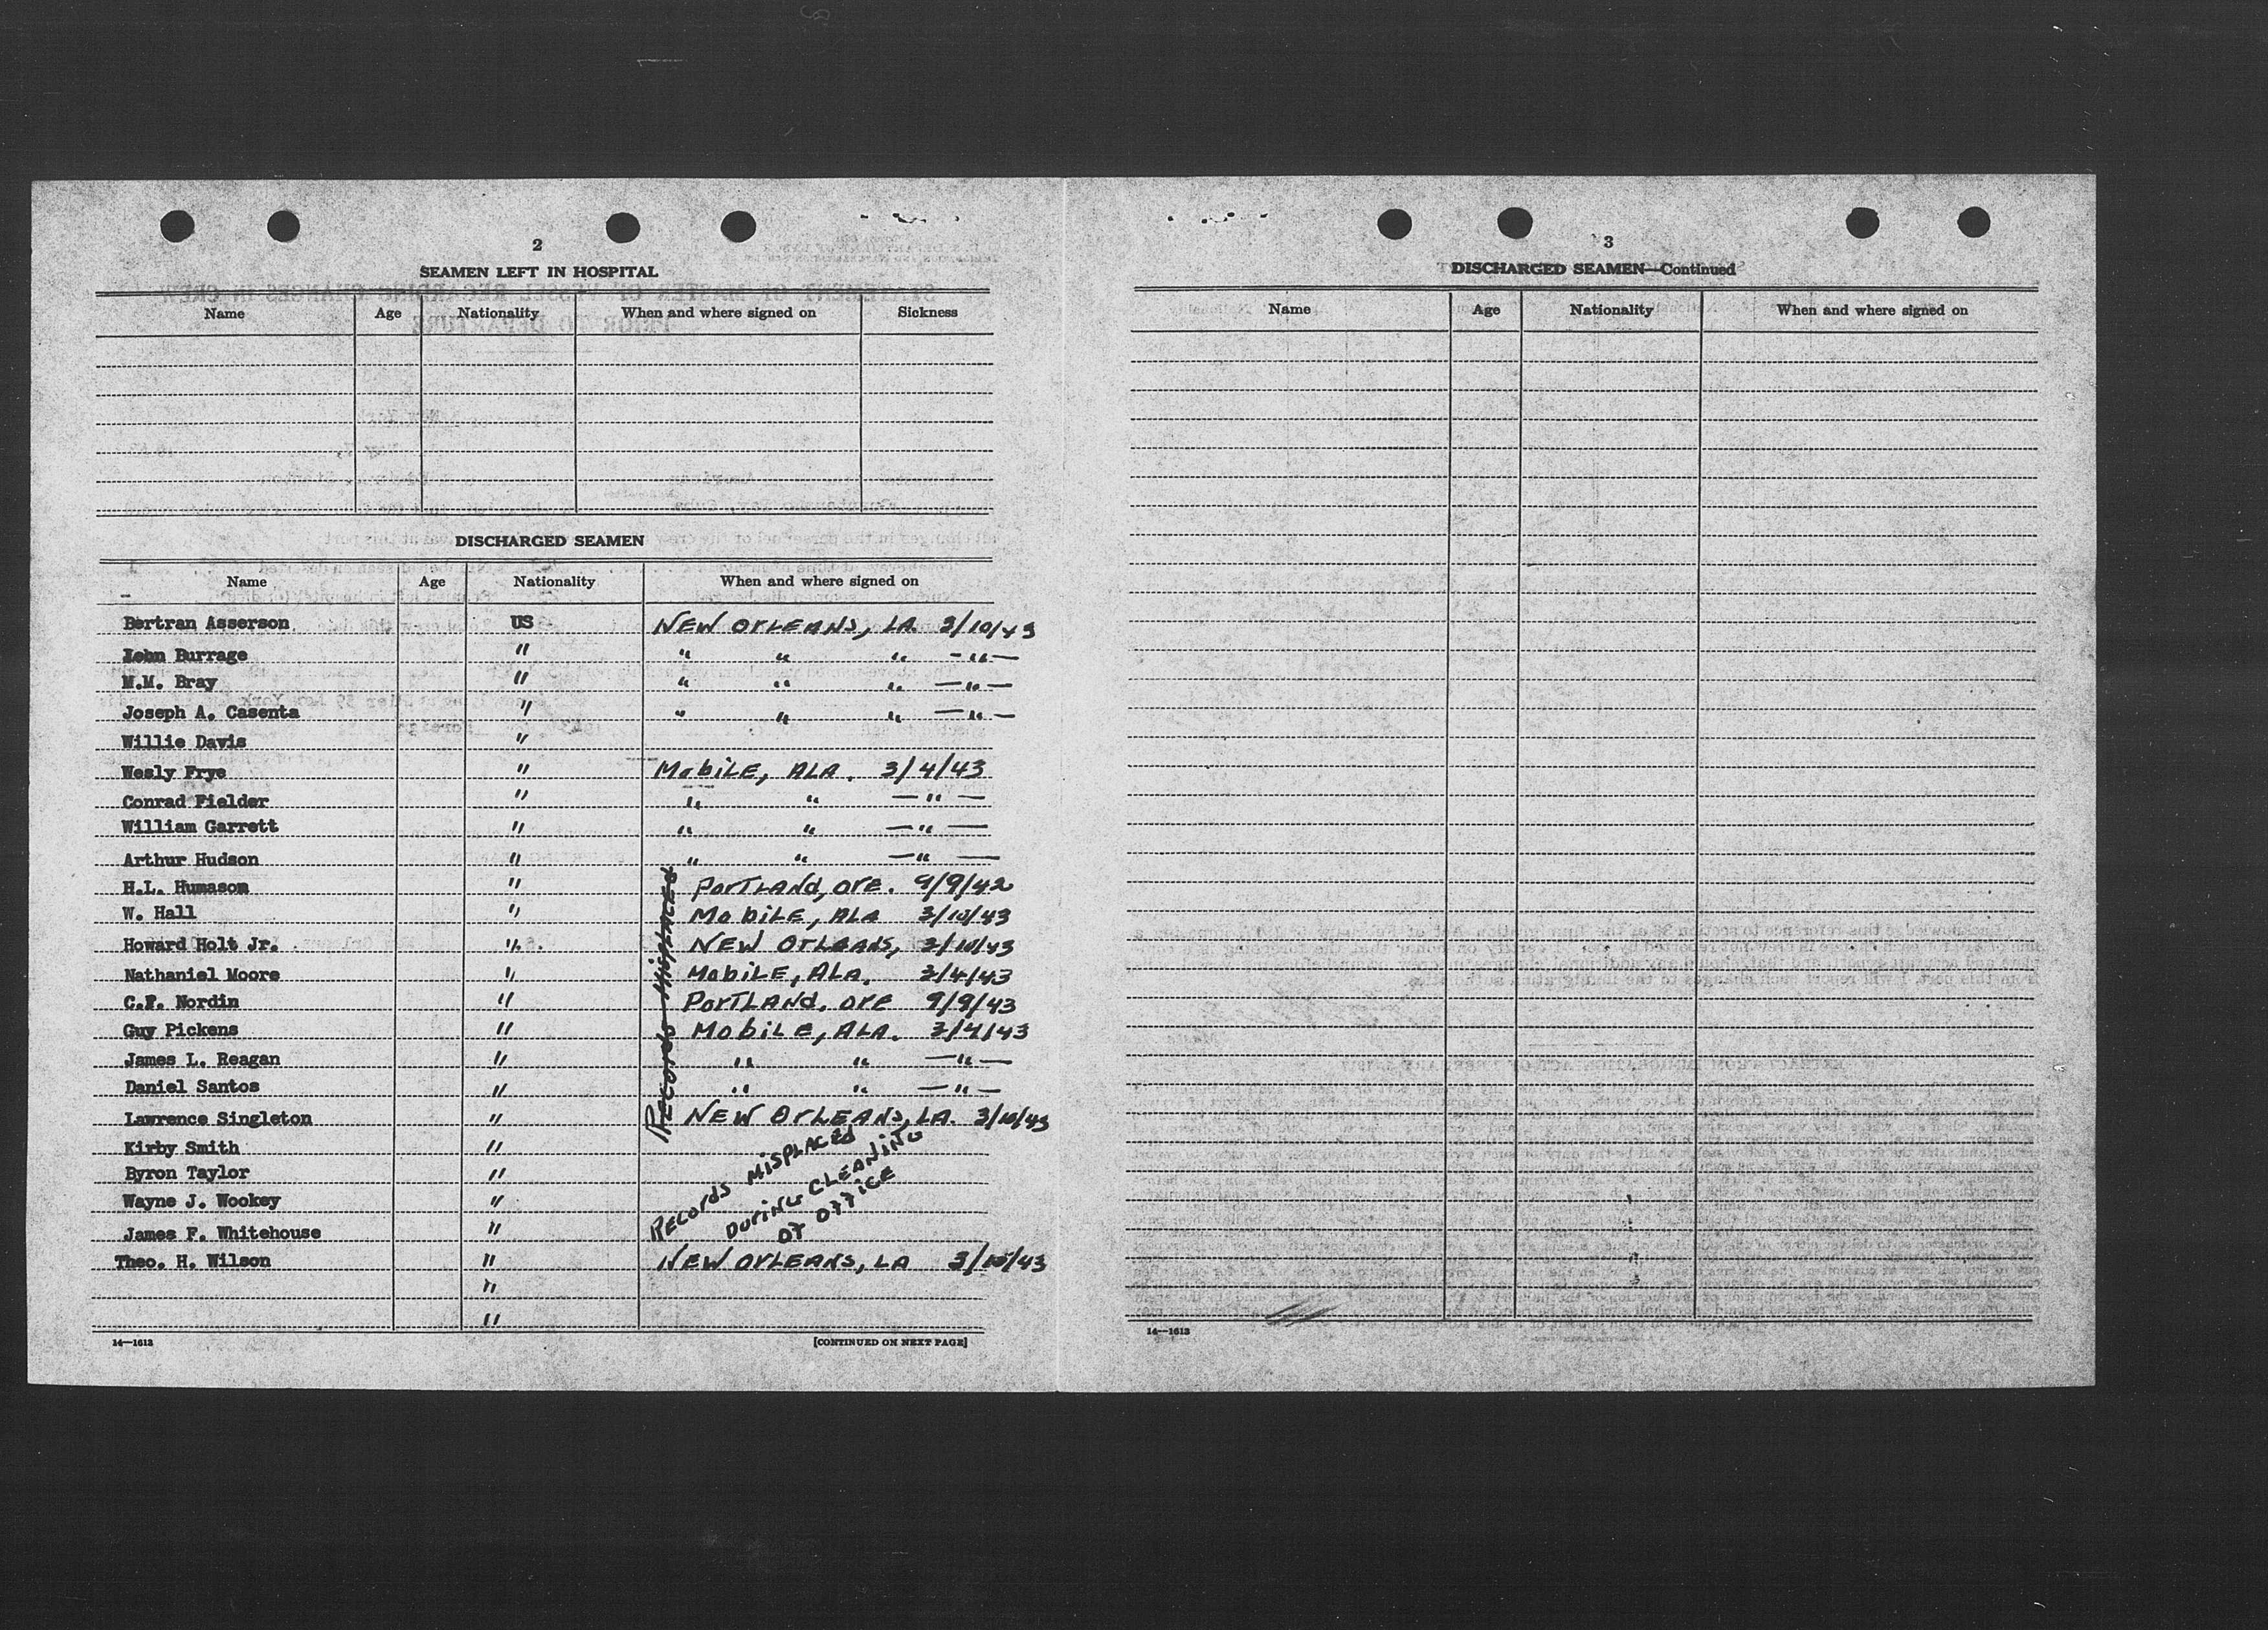 2
SEAMEN LEFT IN HOSPITAL
Name Age Nationality When and where signed on Sickness
DISCHARGED SEAMEN
Name Age Nationality When and where signed on
Bertran Asserson US NEW OrLEANS, LA. 3/10/43
Burrage " " " " — " —
M.M. Bray " " " " — " —
Joseph A. Casenta " " " " — " —
Willie Davis "
Wesly Frye " MobiLE, ALA. 3/4/43
Conrad Fielder " " " — " —
William Garrett " " " — " —
Arthur Hudson " " " — " —
H.L. Humason " PorTLANd, OrE. 9/9/42
W. Hall " MobiLE, ALA 3/10/43
Howard Holt Jr. " NEW OrLEANS, 3/10/43
Nathaniel Moore " MobiLE, ALA. 3/4/43
C.F. Nordin " PorTLANd. OrE 9/9/43
Guy Pickens " MobiLE, ALA. 3/4/43
James L. Reagan " " " — " —
Daniel Santos " " " — " —
Lawrence Singleton " NEW OrLEANS, LA. 3/10/43
Kirby Smith "
Byron Taylor "
Wayne J. Wookey "
James F. Whitehouse "
Theo. H. Wilson " NEW OrLEANS, LA 3/10/43
"
"
RECords MispLACEd
RECords MispLACEd
DuriNG CLEANiNG
OF OFFiCE
14—1613 [CONTINUED ON NEXT PAGE]
3
DISCHARGED SEAMEN—Continued
Name Age Nationality When and where signed on
14—1613